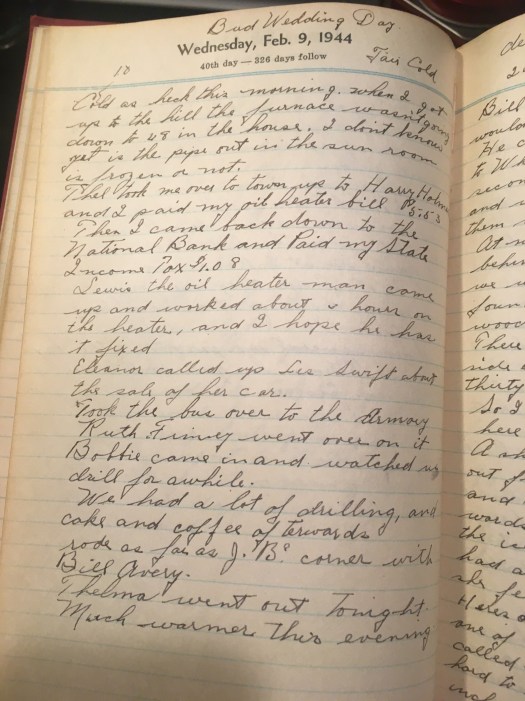 Bud Wedding Day
Wednesday, Feb. 9, 1944
40th day — 326 days follow
10
Fair Cold
Cold as heck this morning. when I got
up to the hill the furnace wasn't going
down to 48 in the house. I don't know
yet is the pipe out in the sun room
is frozen or not.
Thel took me over to town up to Harry
and I paid my oil heater bill $5.53
Then I came back down to the
National Bank and Paid my State
Income Tax $1.08
Lewis the oil heater man came
up and worked about hour on
the heater, and I hope he has
it fixed
Eleanor called up Les Swift about
the sale of her car.
Took the bus over to the Armory
Ruth Finney went over on it
Bobbie came in and watched us
drill for awhile.
We had a lot of drilling, and
cake and coffee afterwards
rode as far as J. B's corner with
Bill Avery.
Thelma went out Tonight.
Much warmer This evening
Bill
He c
to W
secon
and
them
At n
behin
we
foun
wood
There
side
thirty
So I
here
A sh
out of
and
wards
the ic
had a
she fe
one of
called
hard to